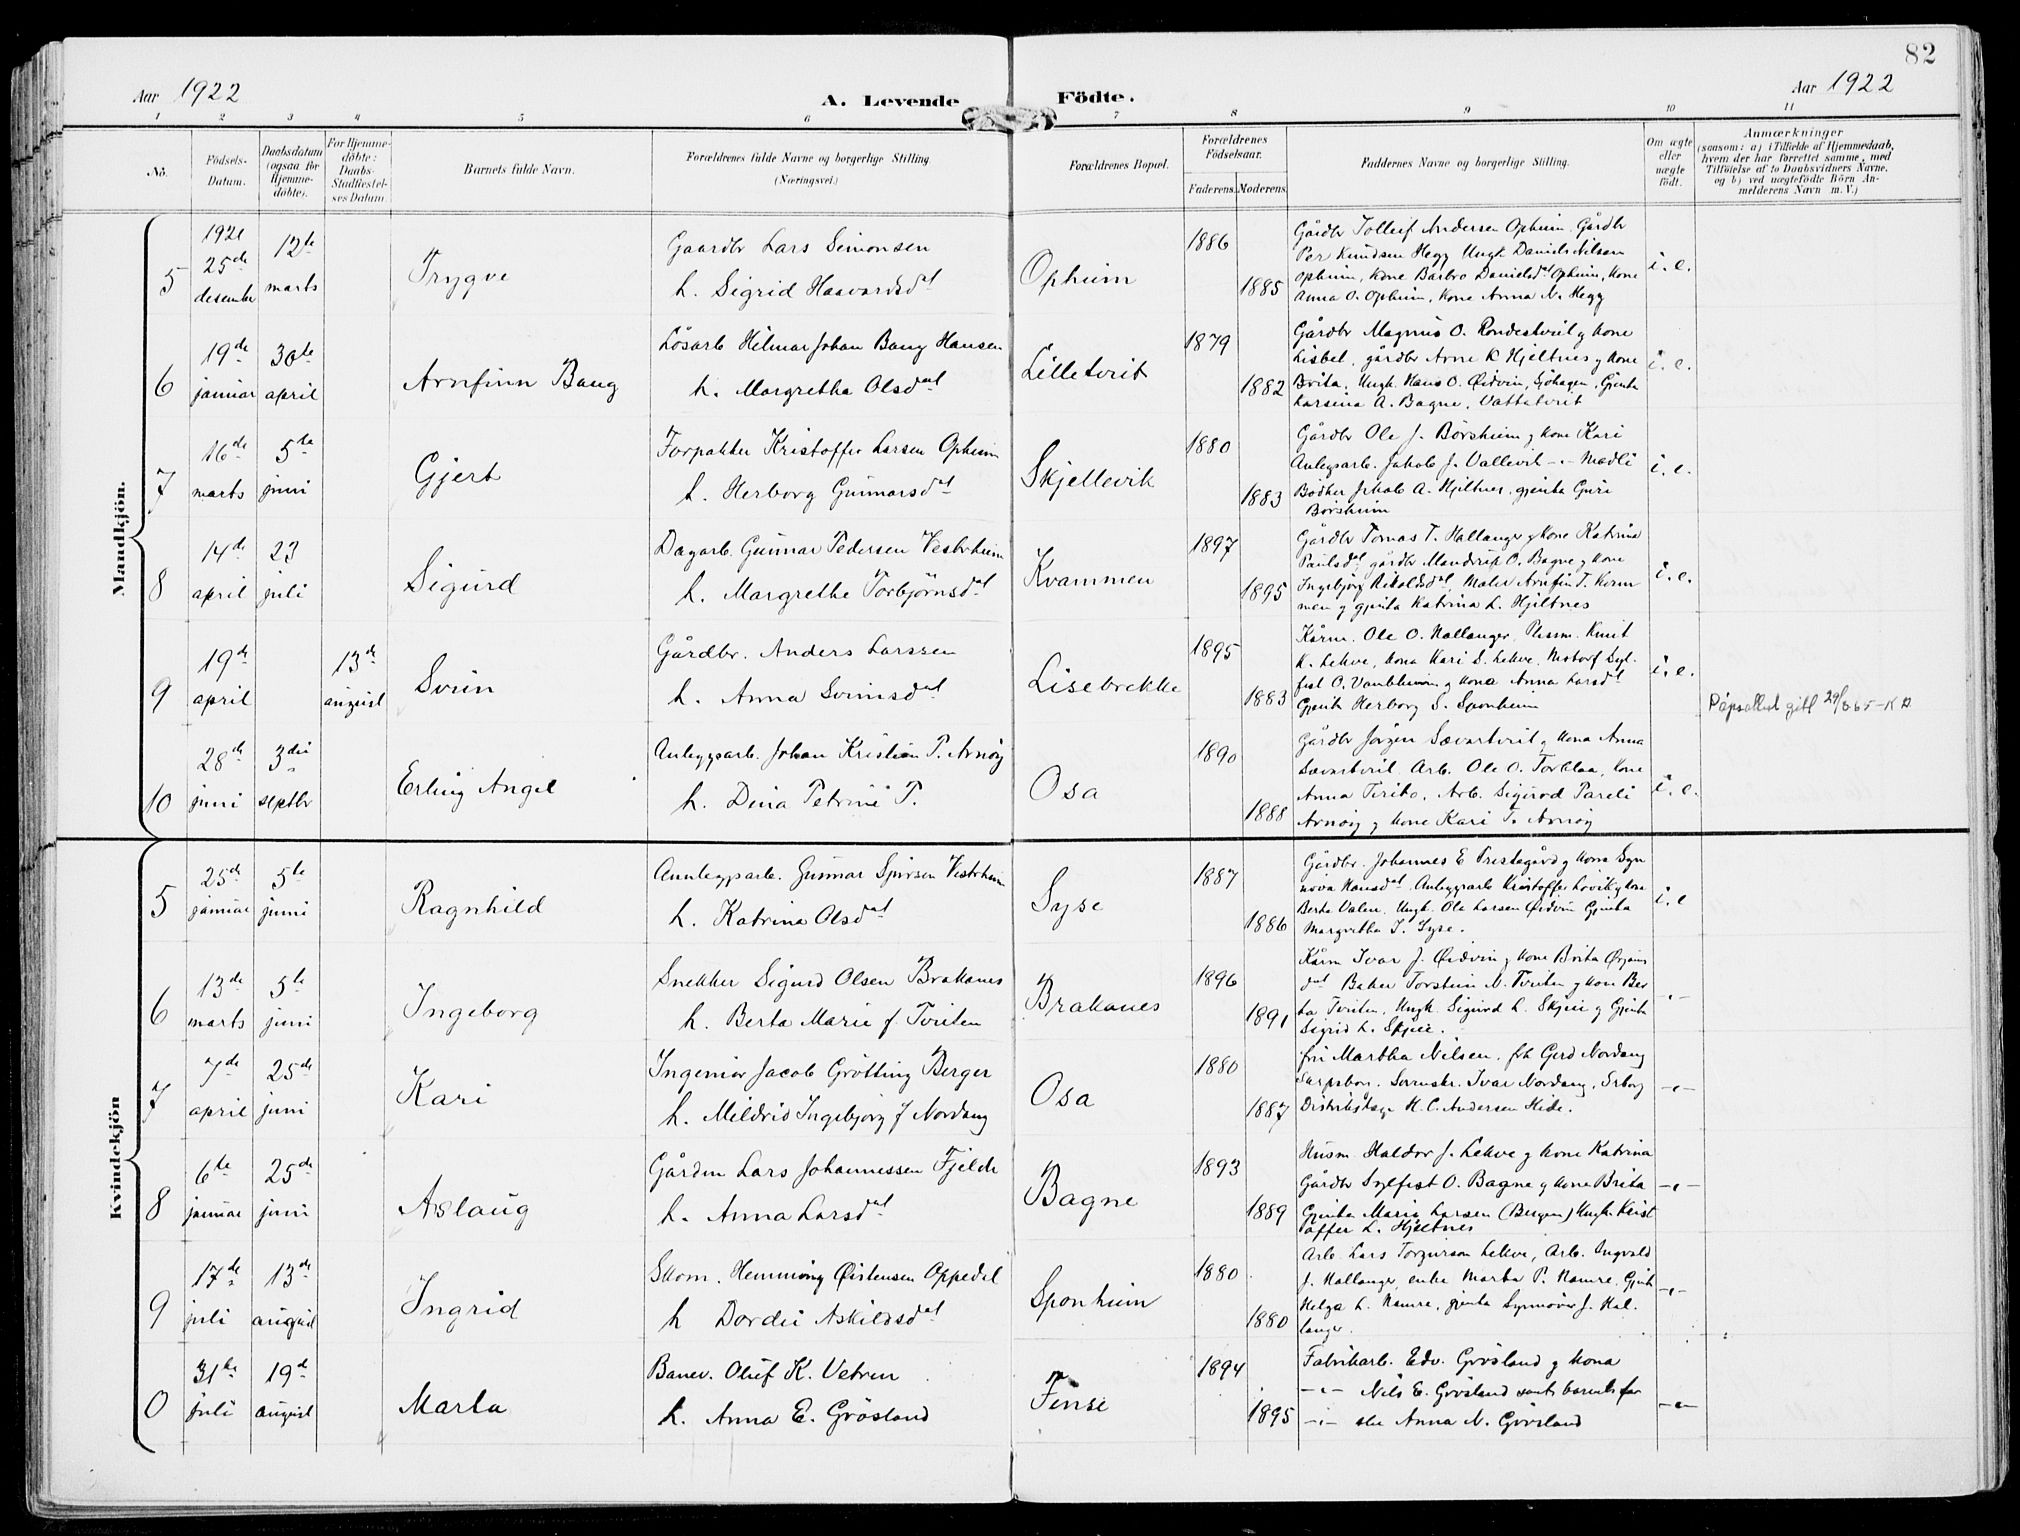 82
Aar 1922
A. Levende
Födte.
Aar 1922
1 2 3 4 5 6 7 8 9 10 11
No.
Födsels-
Datum.
Daabsdatum
(ogsaa for
Hjemme-
döbte).
For Hjemme-
döbte:
Daabs-
Stadfæstel-
ses Datum
Barnets fulde Navn.
Forældrenes fulde Navne og borgerlige Stilling.
(Næringsvei.)
Forældrenes Bopæl.
Forældrenes
Födselsaar.
Faderens. Moderens.
Faddernes Navne og borgerlige Stilling.
Om ægte
eller
uægte
födt.
Anmærkninger
(saasom: a) i Tilfælde af Hjemmedaab,
hvem der har forrettet samme, med
Tilföielse af to Daabsvidners Navne.
og b) ved uægtefödte Börn An-
melderens Navn m. V.)
Mandkjön.
5
1921
25de
desember
12te
marts
Trygve
Gaardbr Lars Simonsen
h. Sigrid Haavardsdat
Opheim
1886
1885
Gårdbr Tolleif Andersen Opheim. Gårdbr
Per Knudsen Hegg Ungk. Daniel Nilsen
Opheim, kone Barbro Danielsdat Opheim, kone
Anna O. Opheim, kone Anna N. Hegg
i. e.
6
19de
januar
30te
april
Arnfinn Bang
Lösarb Hilmar Johan Bang Hansen
h. Margretha Olsdat
Lilletveit
1879
1882
Gårdbr Magnus O. Rondestveit og kone
Lisbet, gårdbr Arne K Hjeltnes og kone
Brita, Ungk. Hans O. Øidvin, Gjenta
Larsina A. Bagne, Vattatveit
i. e.
7
16de
marts
5te
juni
Gjert
Forpakter Kristoffer Larsen Opheim
h. Herborg Gunnarsdat
Skjellevik
1880
1883
Gårdbr Ole J. Börsheim og kone Kari
Anlegsarb. Jakob J. Vallevik -"- Madli
Bödker Jakob A. Hjeltnes, gjenta Guri
Börsheim
i. e.
8
14de
april
23
juli
Sigurd
Dagarb. Gunnar Pedersen Vestrheim
h. Margrethe Torbjörnsdat
Kvammen
1897
1895
Gårdbr Tomas T. Hallanger og kone Katrina
Paulsdat, gårdbr Mandrup O. Bagne og kone
Ingebjörg, Maler Arnfin T. Kvam
men og gjenta Katrina L. Hjeltnes
i. e.
9
19de
april
13de
august
Svein
Gårdbr. Anders Larssen
h. Anna Sveinsdat
Lisebrekke
1895
1883
Kårm. Ole O. Hallanger, Knut
K. Lekve, kona Kari S. Lekve, Syl-
fest O. og kona Anna Larsdat
Gjenta Herborg S. Sponheim
i. e.
29/3 65 - K
10
28de
juni
3die
septbr
Erling Angel
Anleggsarb. Johan Kristian P. Arnöy
h. Dina Petrine P.
Osa
1890
1888
Gårdbr Jörgen Sævartveit og kona Anna
Sævartveit, Arb. Ole O. Torblaa, kone
Anna, Arb. Sigurd Pareli
Arnöy og kone Kari T. Arnöy
i. e.
Kvindekjön
5
25de
januar
5te
juni
Ragnhild
Annleggsarb. Gunnar Sjursen Vestrheim
h. Katrina Olsdat
Syse
1887
1886
Gårdbr. Johannes E Prestegård og kona Syn
növa Hansdat. Anleggsarb Kristoffer Lovik og kone
Berta Valen. Ungk. Ole Larsen Øidvin Gjenta
Margretha I. Syse.
i. e
6
13de
marts
5te
juni
Ingeborg
Snekker Sigurd Olsen Brakanes
h. Berta Marie f Tveiten
Brakanes
1896
1891
Kårm Ivar J. Øidvin og kone Brita Ørjans
dat Baker Torstein N. Tveiten og kone Ber
ta Tveiten, Ungk. Sigurd L. Skjeie og Gjenta
Sigrid L. Skjeie.
-"-
7
7de
april
25de
juni
Kari
Ingeniör Jacob Grötting Berger
h. Mildrid Ingebjörg f Nordang
Osa
1880
1887
fru Martha Nilsen, frk Gerd Nordang
Sarpsborg. Ivar Nordang,
Distriktslæge H. C. Andersen Eide.
-"-
8
6te
januar
25de
juni
Aslaug
Gårdm Lars Johannessen Fjelde
h. Anna Larsdat
Bagne
1893
1889
Husm Haldor J. Lekve og kone Katrina
Gårdbr Sylfest O. Bagne og kone Brita
Gjenta Maria Larsen (Bergen) Ungk. Krist
offer L. Hjeltnes
-"-
9
17de
juli
13de
august
Ingrid
Skom. Hemming Øistensen Oppedal
h Dordei Askildsdat
Sponheim
1880
1880
Arb Lars Torgeirson Lekve, Arb. Ingvald
J. Hallanger, enke Marta P. Namre, Gjenta
Helga L. Namre, gjenta Synnöver J. Hal-
langer.
-"-
0
31te
juli
19de
august
Marta
Banev. Oluf K. Vetren
h. Anna E. Grösland
Finse
1894
1895
Fabrikarb. Edv. Grösland og kona
-"- Nils E. Grösland samt barnets far
-"- Anna N. Grösland
-"-